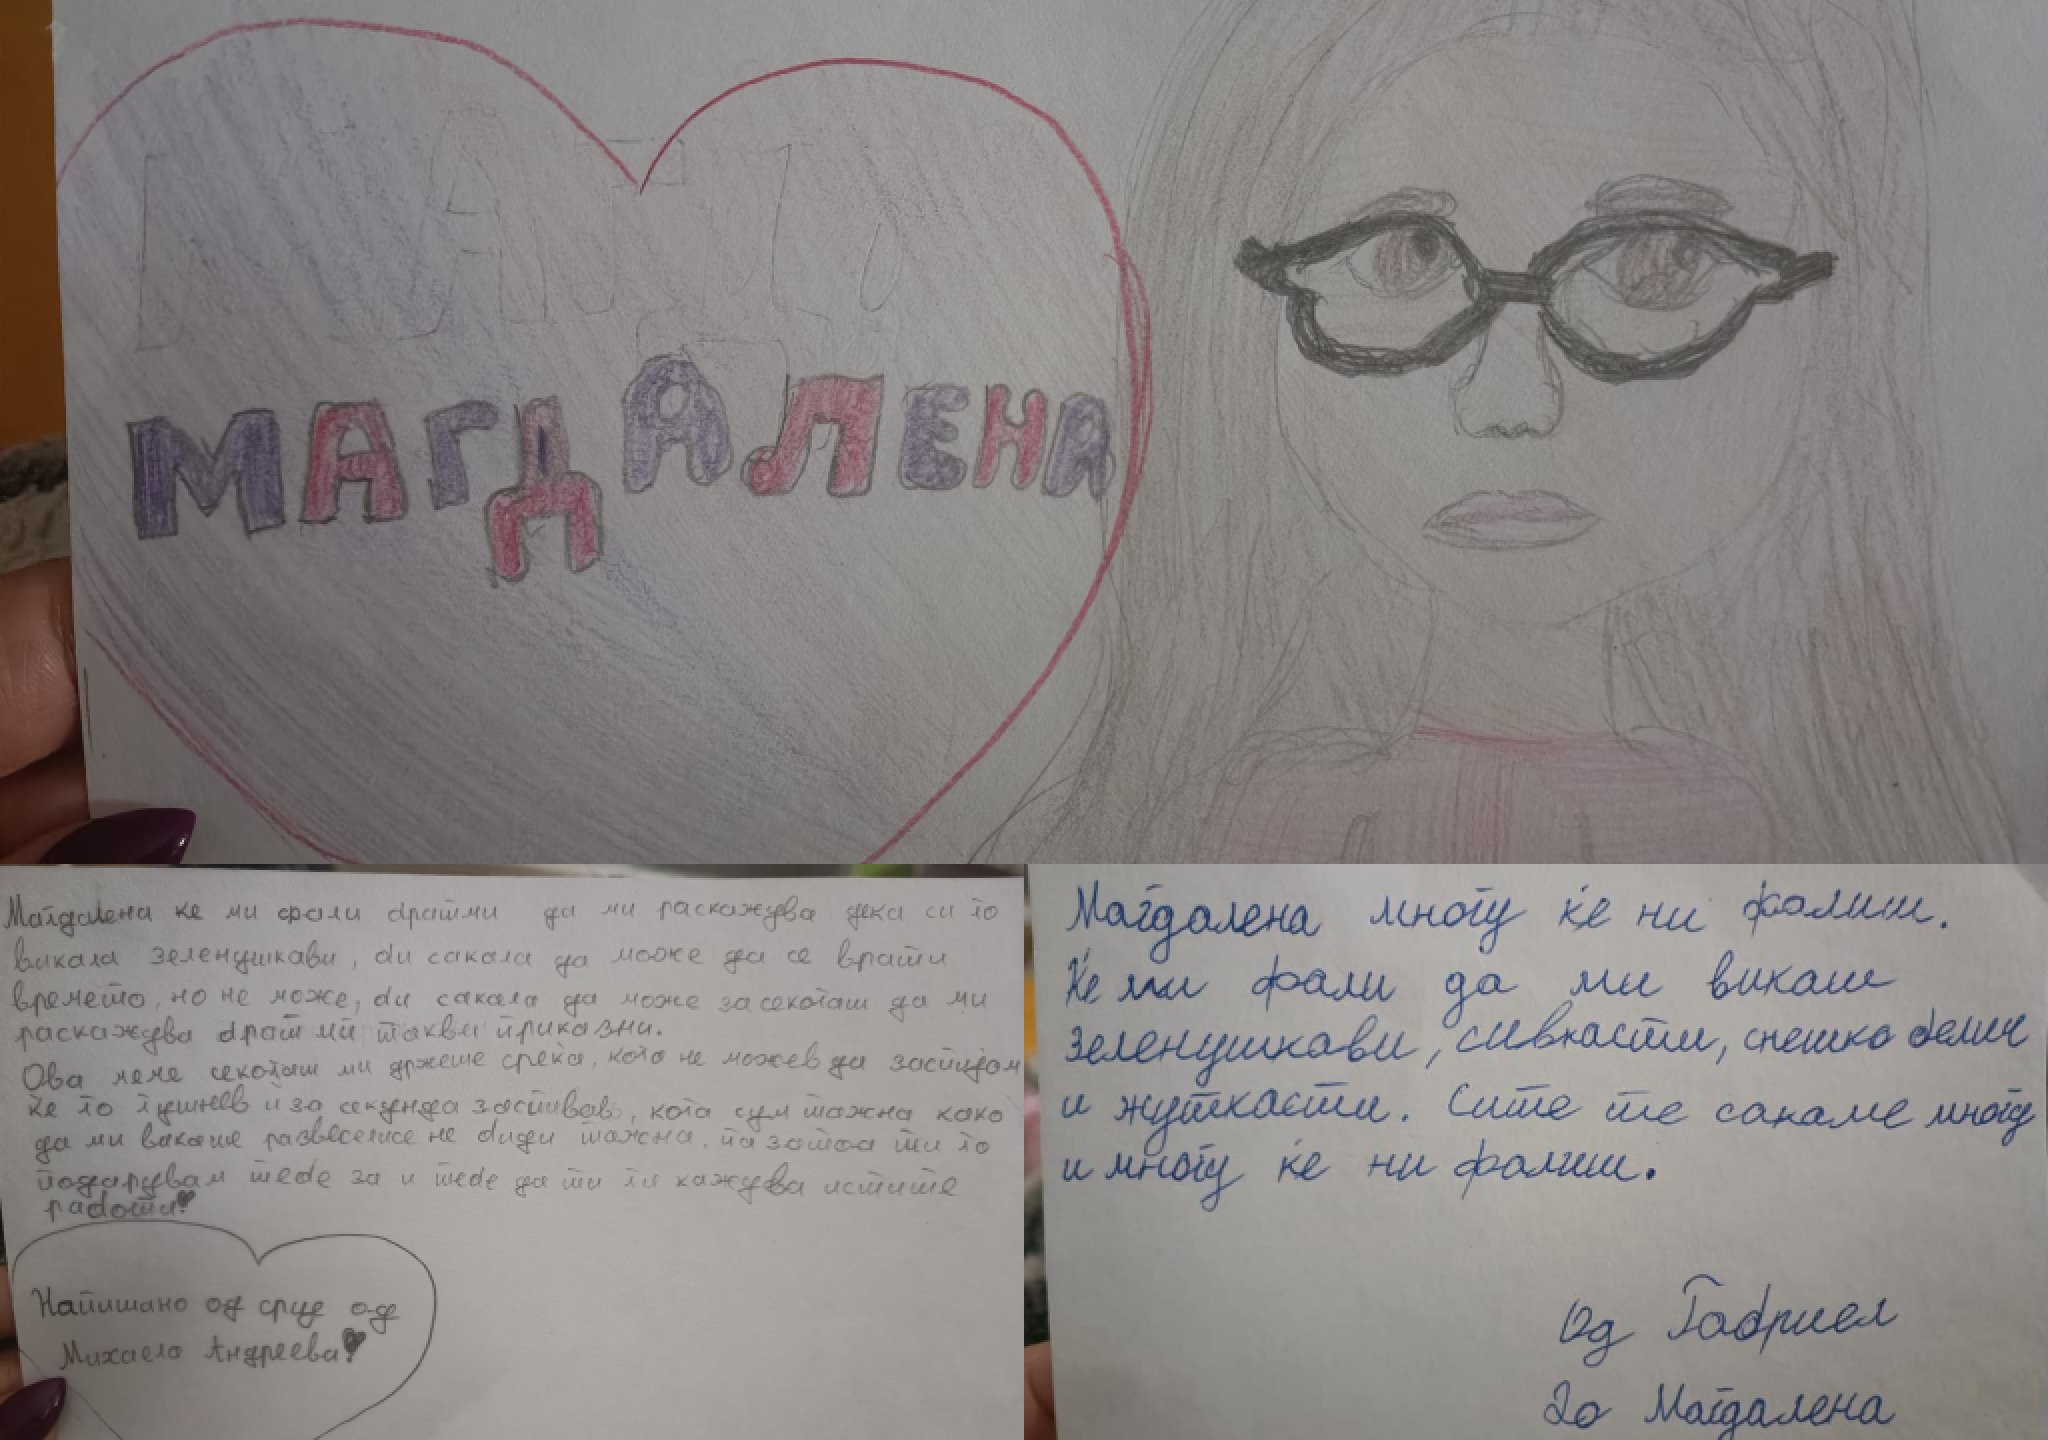 МАГДАЛЕНА
Магдалена ке ми фали братми да ми раскажува дека си го
викала зеленушкави, би сакала да може да се врати
времето, но не може, би сакала да може засекогаш да ми
раскажува брат ми такви приказни.
Ова мене секогаш ми држеше среќа, кога не можев да заспијам
ке го гушнев и за секунда заспивав, кога сум тажна како
да ми викаше развесели се не биди тажна, па затоа ти го
подарувам тебе за и тебе да ти ги кажува истите
радости!
Напишано од срце од
Михаела Андреева!
Магдалена многу ќе ни фалиш.
Ќе ми фали да ми викаш
зеленушкави, сивкасти, снешко белич
и жуткасти. Сите те сакаме многу
и многу ќе ни фалиш.
Од Габриел
До Магдалена